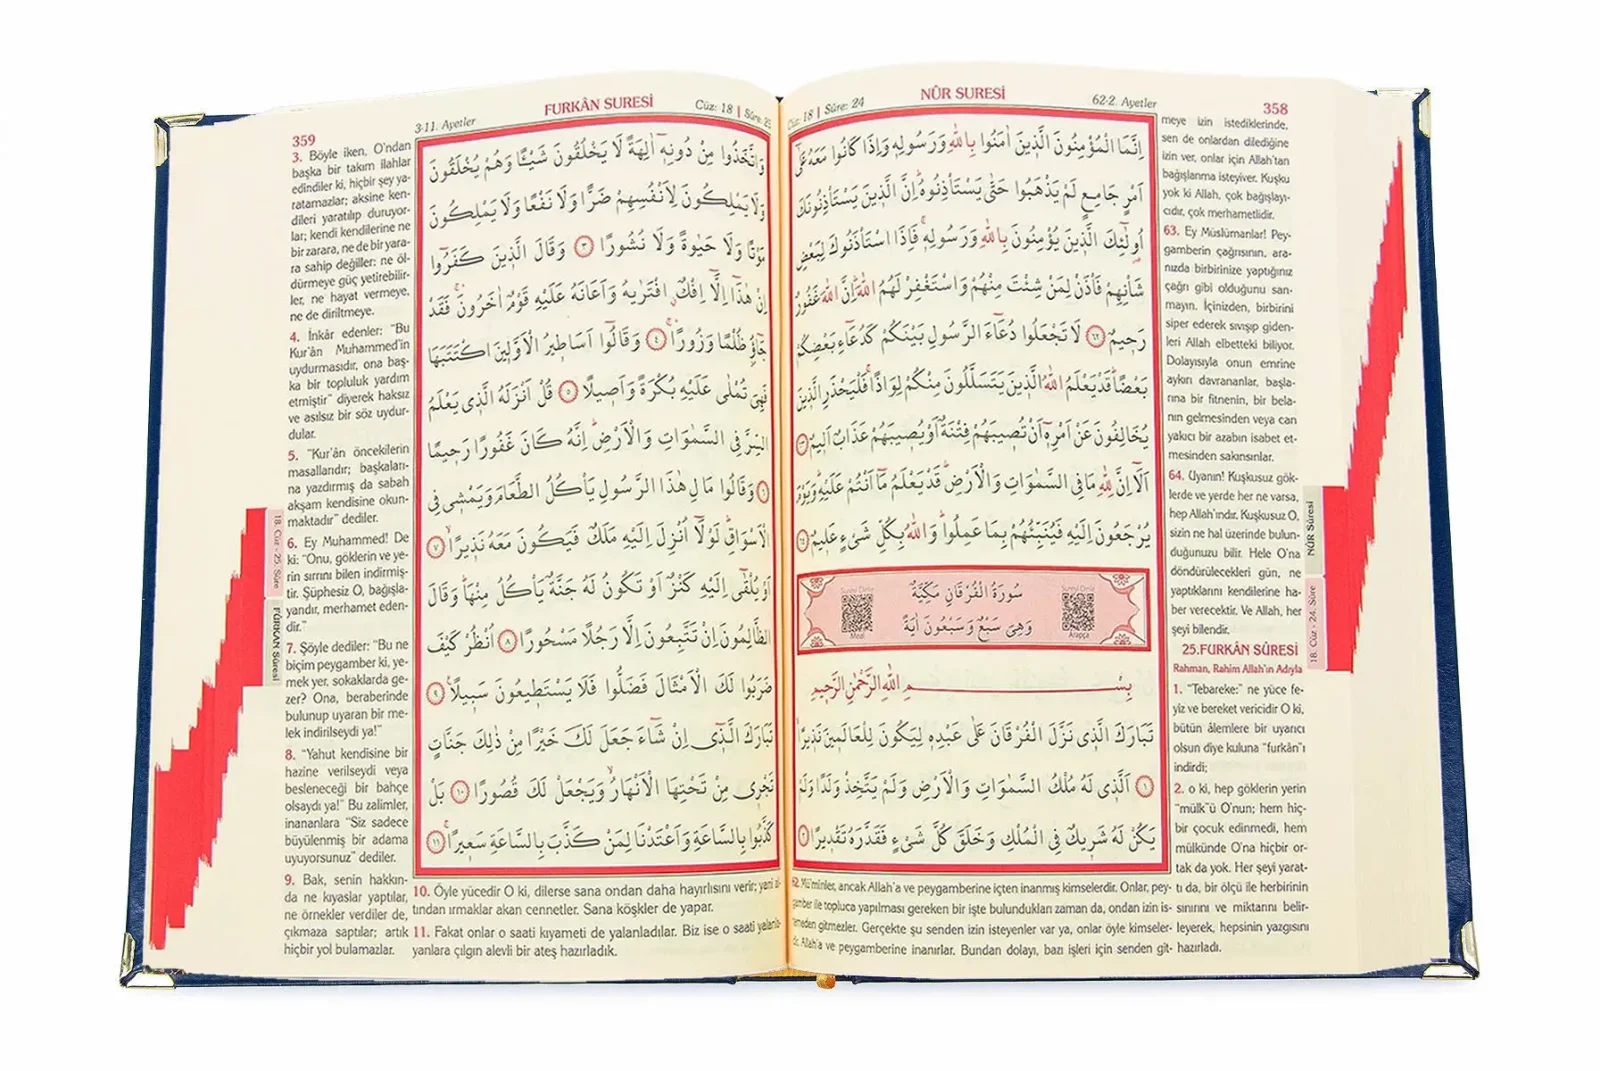 358
NÛR SURESİ
62-2. Ayetler
Cüz: 18 | Sûre: 24
اِنَّمَا الْمُؤْمِنُونَ الَّذ۪ينَ اٰمَنُوا بِاللّٰهِ وَرَسُولِه۪ وَاِذَا كَانُوا مَعَهُ عَلٰٓى
اَمْرٍ جَامِعٍ لَمْ يَذْهَبُوا حَتّٰى يَسْتَأْذِنُوهُۜ اِنَّ الَّذ۪ينَ يَسْتَأْذِنُونَكَ
اُو۬لٰٓئِكَ الَّذ۪ينَ يُؤْمِنُونَ بِاللّٰهِ وَرَسُولِه۪ۚ فَاِذَا اسْتَأْذَنُوكَ لِبَعْضِ
شَأْنِهِمْ فَأْذَنْ لِمَنْ شِئْتَ مِنْهُمْ وَاسْتَغْفِرْ لَهُمُ اللّٰهَۜ اِنَّ اللّٰهَ غَفُورٌ
رَح۪يمٌ ﴿٦٢﴾ لَا تَجْعَلُوا دُعَٓاءَ الرَّسُولِ بَيْنَكُمْ كَدُعَٓاءِ بَعْضِكُمْ
بَعْضًاۜ قَدْ يَعْلَمُ اللّٰهُ الَّذ۪ينَ يَتَسَلَّلُونَ مِنْكُمْ لِوَاذًاۚ فَلْيَحْذَرِ الَّذ۪ينَ
يُخَالِفُونَ عَنْ اَمْرِه۪ٓ اَنْ تُص۪يبَهُمْ فِتْنَةٌ اَوْ يُص۪يبَهُمْ عَذَابٌ اَل۪يمٌ ﴿٦٣﴾
اَلَٓا اِنَّ لِلّٰهِ مَا فِي السَّمٰوَاتِ وَالْاَرْضِۜ قَدْ يَعْلَمُ مَٓا اَنْتُمْ عَلَيْهِۜ وَيَوْمَ
يُرْجَعُونَ اِلَيْهِ فَيُنَبِّئُهُمْ بِمَا عَمِلُواۜ وَاللّٰهُ بِكُلِّ شَيْءٍ عَل۪يمٌ ﴿٦٤﴾
سُورَةُ الْفُرْقَانِ مَكِّيَّةٌ
وَهِيَ سَبْعٌ وَسَبْعُونَ اٰيَةً
Meal
Arapça
بِسْمِ اللّٰهِ الرَّحْمٰنِ الرَّح۪يمِ
تَبَارَكَ الَّذ۪ي نَزَّلَ الْفُرْقَانَ عَلٰى عَبْدِه۪ لِيَكُونَ لِلْعَالَم۪ينَ نَذ۪يرًاۙ
﴿١﴾ اَلَّذ۪ي لَهُ مُلْكُ السَّمٰوَاتِ وَالْاَرْضِ وَلَمْ يَتَّخِذْ وَلَدًا وَلَمْ
يَكُنْ لَهُ شَر۪يكٌ فِي الْمُلْكِ وَخَلَقَ كُلَّ شَيْءٍ فَقَدَّرَهُ تَقْد۪يرًا ﴿٢﴾
62. Mü'minler, ancak Allah'a ve peygamberine içten inanmış kimselerdir. Onlar, pey-
gamber ile topluca yapılması gereken bir işte bulundukları zaman da, ondan izin is-
temeden gitmezler. Gerçekte şu senden izin isteyenler var ya, onlar öyle kimseler-
dir. Allah'a ve peygamberine inanırlar. Bundan dolayı, bazı işleri için senden git-
meye izin istediklerinde,
sen de onlardan dilediğine
izin ver, onlar için Allah'tan
bağışlanma isteyiver. Kuşku
yok ki Allah, çok bağışlayı-
cıdır, çok merhametlidir.
63. Ey Müslümanlar! Pey-
gamberin çağrısının, ara-
nızda birbirinize yaptığınız
çağrı gibi olduğunu san-
mayın. İçinizden, birbirini
siper ederek sıvışıp giden-
leri Allah elbetteki biliyor.
Dolayısıyla onun emrine
aykırı davrananlar, başla-
rına bir fitnenin, bir bela-
nın gelmesinden veya can
yakıcı bir azabın isabet et-
mesinden sakınsınlar.
64. Uyanın! Kuşkusuz gök-
lerde ve yerde her ne varsa,
hep Allah'ındır. Kuşkusuz O,
sizin ne hal üzerinde bulun-
duğunuzu bilir. Hele O'na
döndürülecekleri gün, ne
yaptıklarını kendilerine ha-
ber verecektir. Ve Allah, her
şeyi bilendir.
25.FURKÂN SÛRESİ
Rahman, Rahim Allah'ın Adıyla
1. "Tebareke:" ne yüce fe-
yiz ve bereket vericidir O ki,
bütün âlemlere bir uyarıcı
olsun diye kuluna "furkân"ı
indirdi;
2. o ki, hep göklerin yerin
"mülk"ü O'nun; hem hiç-
bir çocuk edinmedi, hem
mülkünde O'na hiçbir or-
tak da yok. Her şeyi yarat-
tı da, bir ölçü ile herbirinin
sınırını ve miktarını belir-
leyerek, hepsinin yazgısını
hazırladı.
NÛR Sûresi
18. Cüz - 24. Sûre
359
FURKÂN SURESİ
3-11. Ayetler
Cüz: 18 | Sûre: 25
وَاتَّخَذُوا مِنْ دُونِه۪ٓ اٰلِهَةً لَا يَخْلُقُونَ شَيْـًٔا وَهُمْ يُخْلَقُونَ
وَلَا يَمْلِكُونَ لِاَنْفُسِهِمْ ضَرًّا وَلَا نَفْعًا وَلَا يَمْلِكُونَ
مَوْتًا وَلَا حَيٰوةً وَلَا نُشُورًا ﴿٣﴾ وَقَالَ الَّذ۪ينَ كَفَرُٓوا
اِنْ هٰذَٓا اِلَّٓا اِفْكٌۨ افْتَرٰيهُ وَاَعَانَهُ عَلَيْهِ قَوْمٌ اٰخَرُونَۚ فَقَدْ
جَٓاؤُ۫ ظُلْمًا وَزُورًاۚ ﴿٤﴾ وَقَالُٓوا اَسَاط۪يرُ الْاَوَّل۪ينَ اكْتَتَبَهَا
فَهِيَ تُمْلٰى عَلَيْهِ بُكْرَةً وَاَص۪يلًا ﴿٥﴾ قُلْ اَنْزَلَهُ الَّذ۪ي يَعْلَمُ
السِّرَّ فِي السَّمٰوَاتِ وَالْاَرْضِۜ اِنَّهُ كَانَ غَفُورًا رَح۪يمًا
﴿٦﴾ وَقَالُوا مَالِ هٰذَا الرَّسُولِ يَأْكُلُ الطَّعَامَ وَيَمْش۪ي فِي
الْاَسْوَاقِۜ لَوْلَٓا اُنْزِلَ اِلَيْهِ مَلَكٌ فَيَكُونَ مَعَهُ نَذ۪يرًاۙ ﴿٧﴾
اَوْ يُلْقٰٓى اِلَيْهِ كَنْزٌ اَوْ تَكُونُ لَهُ جَنَّةٌ يَأْكُلُ مِنْهَاۜ وَقَالَ
الظَّالِمُونَ اِنْ تَتَّبِعُونَ اِلَّا رَجُلًا مَسْحُورًا ﴿٨﴾ اُنْظُرْ كَيْفَ
ضَرَبُوا لَكَ الْاَمْثَالَ فَضَلُّوا فَلَا يَسْتَط۪يعُونَ سَب۪يلًا۟ ﴿٩﴾
تَبَارَكَ الَّذ۪ٓي اِنْ شَٓاءَ جَعَلَ لَكَ خَيْرًا مِنْ ذٰلِكَ جَنَّاتٍ
تَجْر۪ي مِنْ تَحْتِهَا الْاَنْهَارُۙ وَيَجْعَلْ لَكَ قُصُورًا ﴿١٠﴾ بَلْ
كَذَّبُوا بِالسَّاعَةِ وَاَعْتَدْنَا لِمَنْ كَذَّبَ بِالسَّاعَةِ سَع۪يرًاۚ ﴿١١﴾
3. Böyle iken, O'ndan
başka bir takım ilahlar
edindiler ki, hiçbir şey ya-
ratamazlar; aksine ken-
dileri yaratılıp duruyor-
lar; kendi kendilerine ne
bir zarara, ne de bir yara-
ra sahip değiller: ne öl-
dürmeye güç yetirebilir-
ler, ne hayat vermeye,
ne de diriltmeye.
4. İnkâr edenler: "Bu
Kur'ân Muhammed'in
uydurmasıdır, ona baş-
ka bir topluluk yardım
etmiştir" diyerek haksız
ve asılsız bir söz uydur-
dular.
5. "Kur'ân öncekilerin
masallarıdır; başkaları-
na yazdırmış da sabah
akşam kendisine okun-
maktadır" dediler.
6. Ey Muhammed! De
ki: "Onu, göklerin ve ye-
rin sırrını bilen indirmiş-
tir. Şüphesiz O, bağışla-
yandır, merhamet eden-
dir."
7. Şöyle dediler: "Bu ne
biçim peygamber ki, ye-
mek yer, sokaklarda ge-
zer? Ona, beraberinde
bulunup uyaran bir me-
lek indirilseydi ya!"
8. "Yahut kendisine bir
hazine verilseydi veya
besleneceği bir bahçe
olsaydı ya!" Bu zalimler,
inananlara "Siz sadece
büyülenmiş bir adama
uyuyorsunuz" dediler.
9. Bak, senin hakkın-
da ne kıyaslar yaptılar,
ne örnekler verdiler de,
çıkmaza saptılar; artık
hiçbir yol bulamazlar.
10. Öyle yücedir O ki, dilerse sana ondan daha hayırlısını verir; yani al-
tından ırmaklar akan cennetler. Sana köşkler de yapar.
11. Fakat onlar o saati kıyameti de yalanladılar. Biz ise o saati yalanla-
yanlara çılgın alevli bir ateş hazırladık.
18. Cüz - 25. Sûre
FURKAN Sûresi